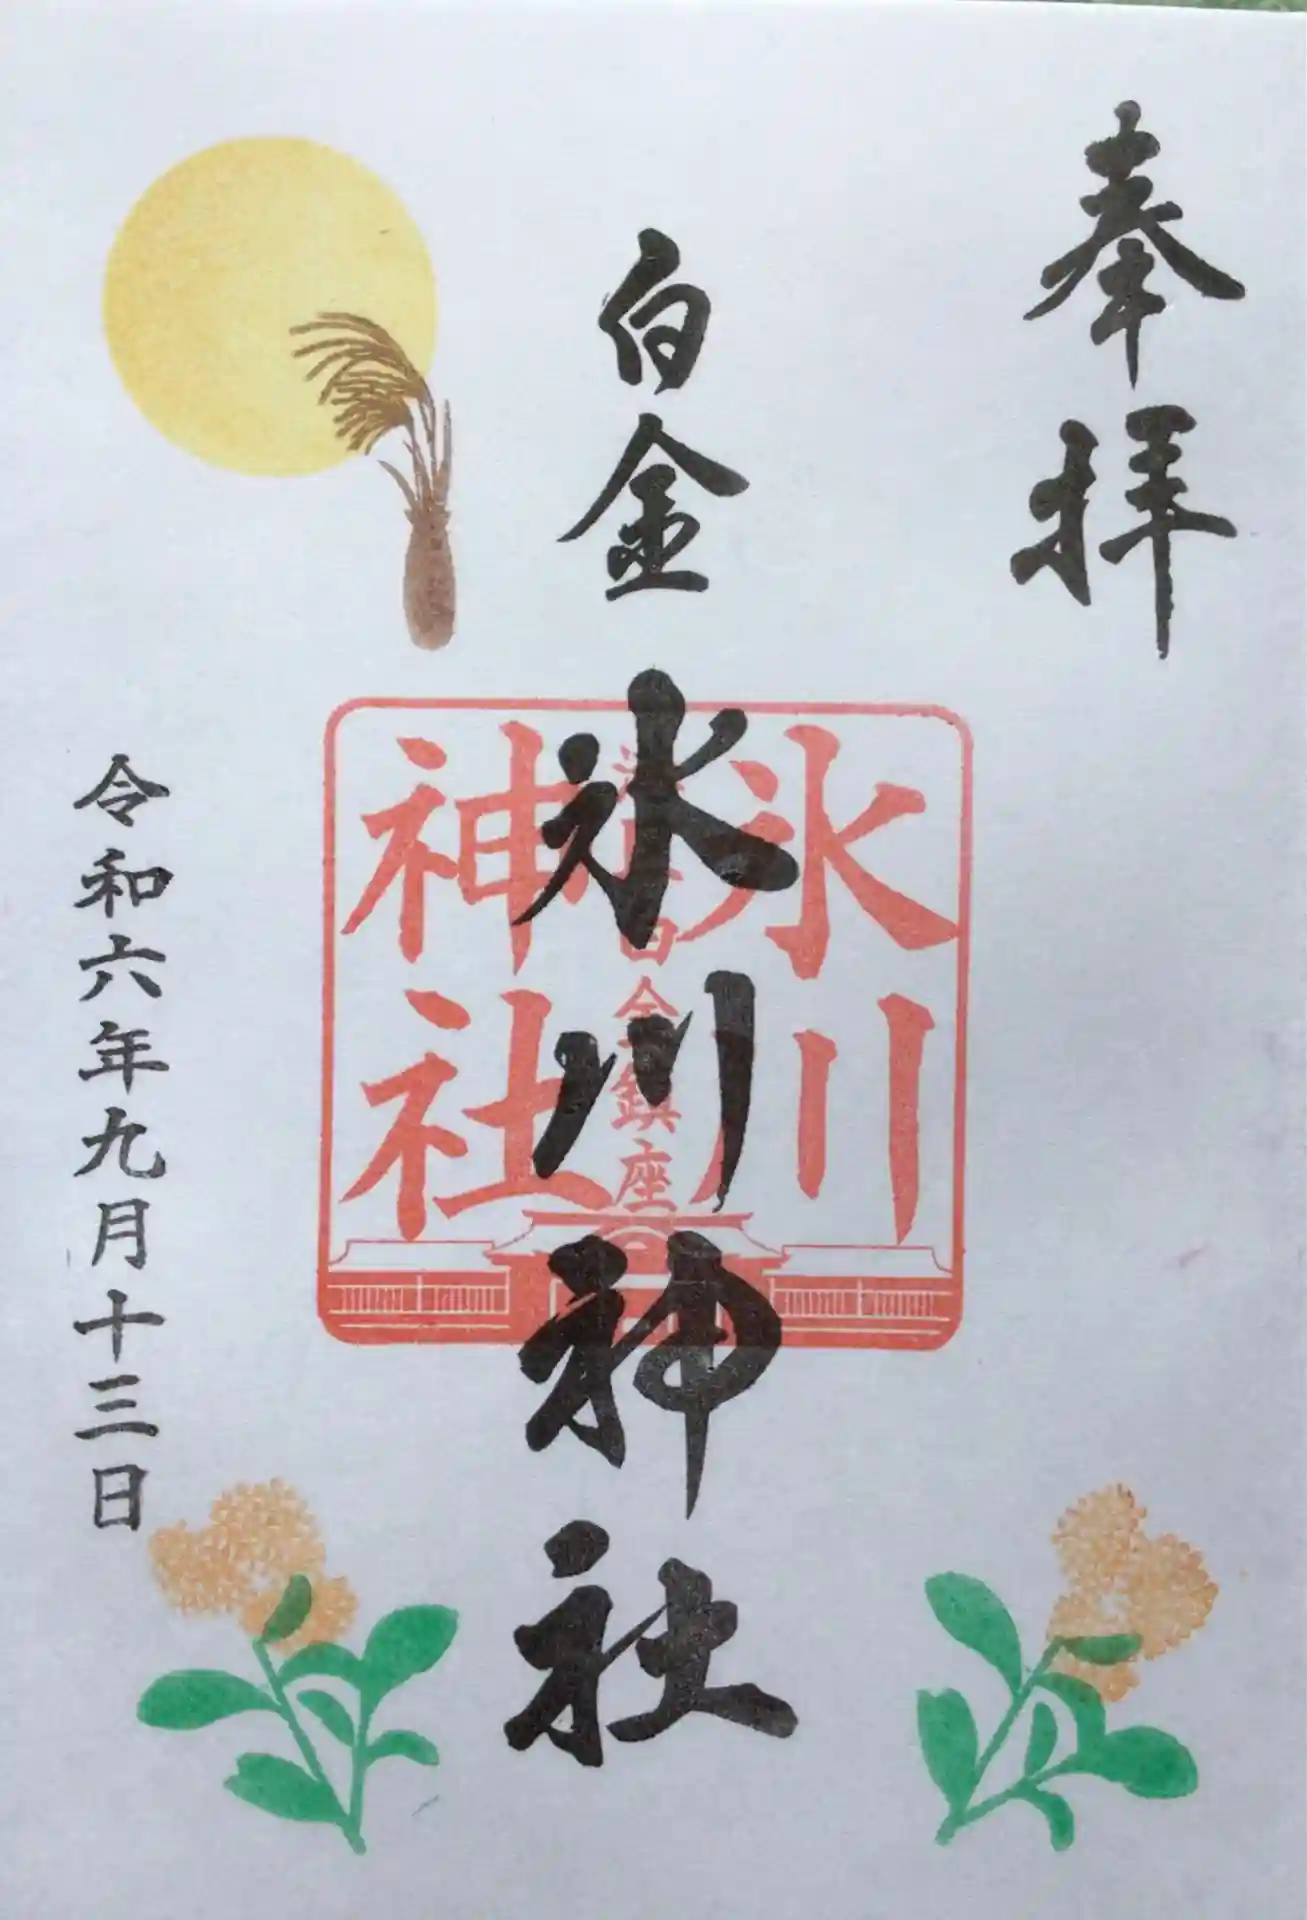 奉拝
白金
氷川神社
氷川
白金鎮座
神社
令和六年九月十三日